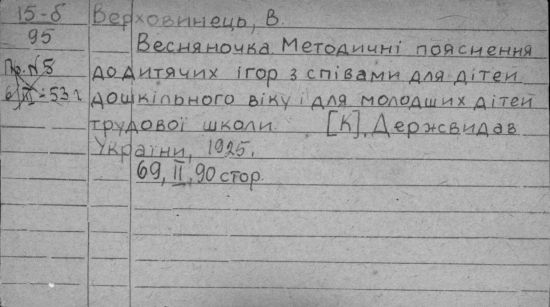 15-б
95
Пр. №5
6/XI-53 г
Верховинець, В.
Весняночка. Методичні пояснення
до дитячих ігор з співами для дітей
дошкільного віку і для молодших дітей
трудової школи. [К], Держвидав
України, 1925.
69, II, 90 стор.